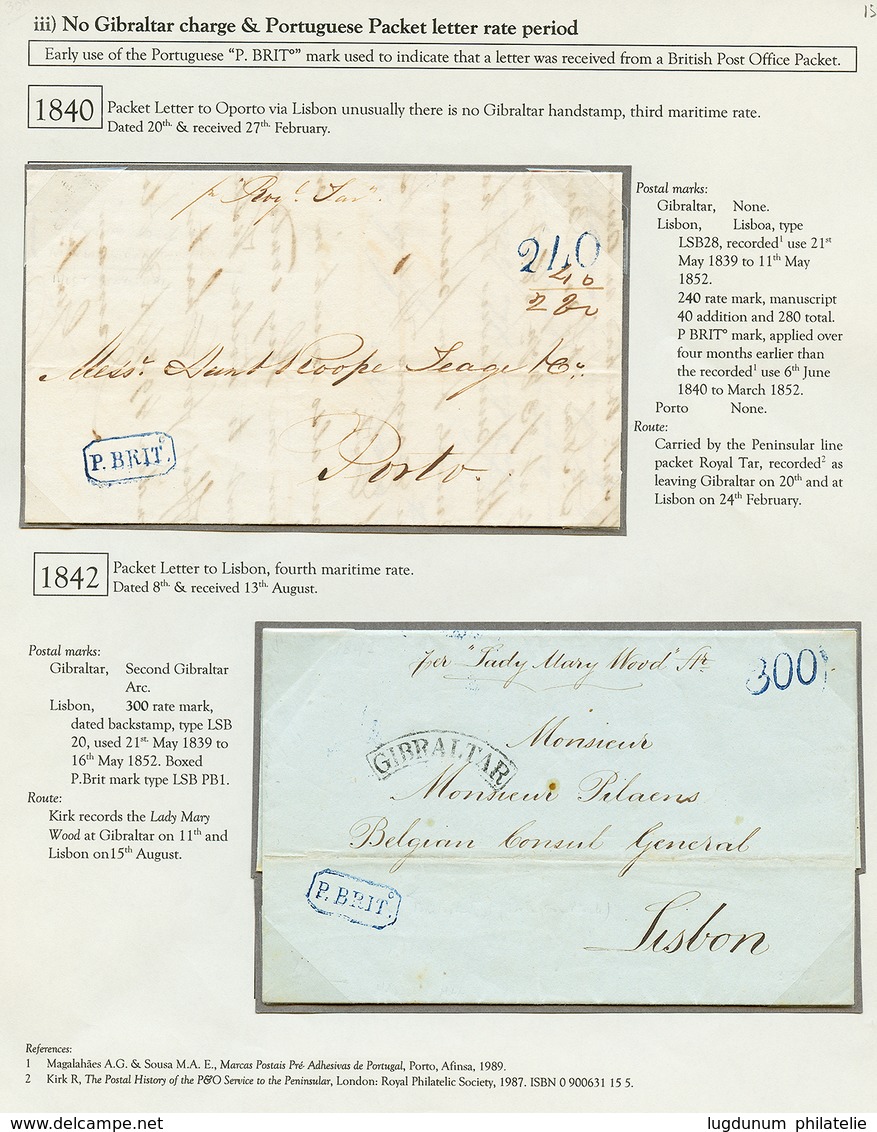 15
iii) No Gibraltar charge & Portuguese Packet letter rate period
Early use of the Portuguese “P. BRITº” mark used to indicate that a letter was received from a British Post Office Packet.
1840
Packet Letter to Oporto via Lisbon unusually there is no Gibraltar handstamp, third maritime rate.
Dated 20th. & received 27th. February.
pr "Royl. Tar".
240
40
280
Messrs. Hunt Roope Teage & Co.
P. BRITº.
Porto.
Postal marks:
Gibraltar, None.
Lisbon, Lisboa, type
LSB28, recorded1 use 21st
May 1839 to 11th May
1852.
240 rate mark, manuscript
40 addition and 280 total.
P BRITº mark, applied over
four months earlier than
the recorded1 use 6th June
1840 to March 1852.
Porto None.
Route:
Carried by the Peninsular line
packet Royal Tar, recorded2 as
leaving Gibraltar on 20th and at
Lisbon on 24th February.
1842
Packet Letter to Lisbon, fourth maritime rate.
Dated 8th. & received 13th. August.
Postal marks:
Gibraltar, Second Gibraltar
Arc.
Lisbon, 300 rate mark,
dated backstamp, type LSB
20, used 21st. May 1839 to
16th May 1852. Boxed
P.Brit mark type LSB PB1.
Route:
Kirk records the Lady Mary
Wood at Gibraltar on 11th and
Lisbon on15th August.
per "Lady Mary Wood" Str
300
GIBRALTAR
Monsieur
Monsieur Pilaens
Belgian Consul General
P. BRITº.
Lisbon
References:
1 Magalahães A.G. & Sousa M.A. E., Marcas Postais Pré- Adhesivas de Portugal, Porto, Afinsa, 1989.
2 Kirk R, The Postal History of the P&O Service to the Peninsular, London: Royal Philatelic Society, 1987. ISBN 0 900631 15 5.
www.delcampe.net
lugdunum philatelie